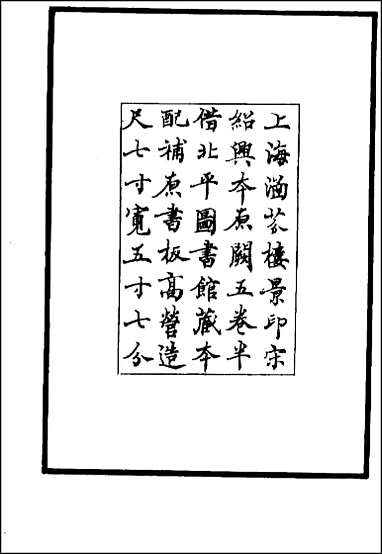 上海涵芬樓景印宋
紹興本原闕五卷半
借北平圖書館藏本
配補原書板高營造
尺七寸寬五寸七分